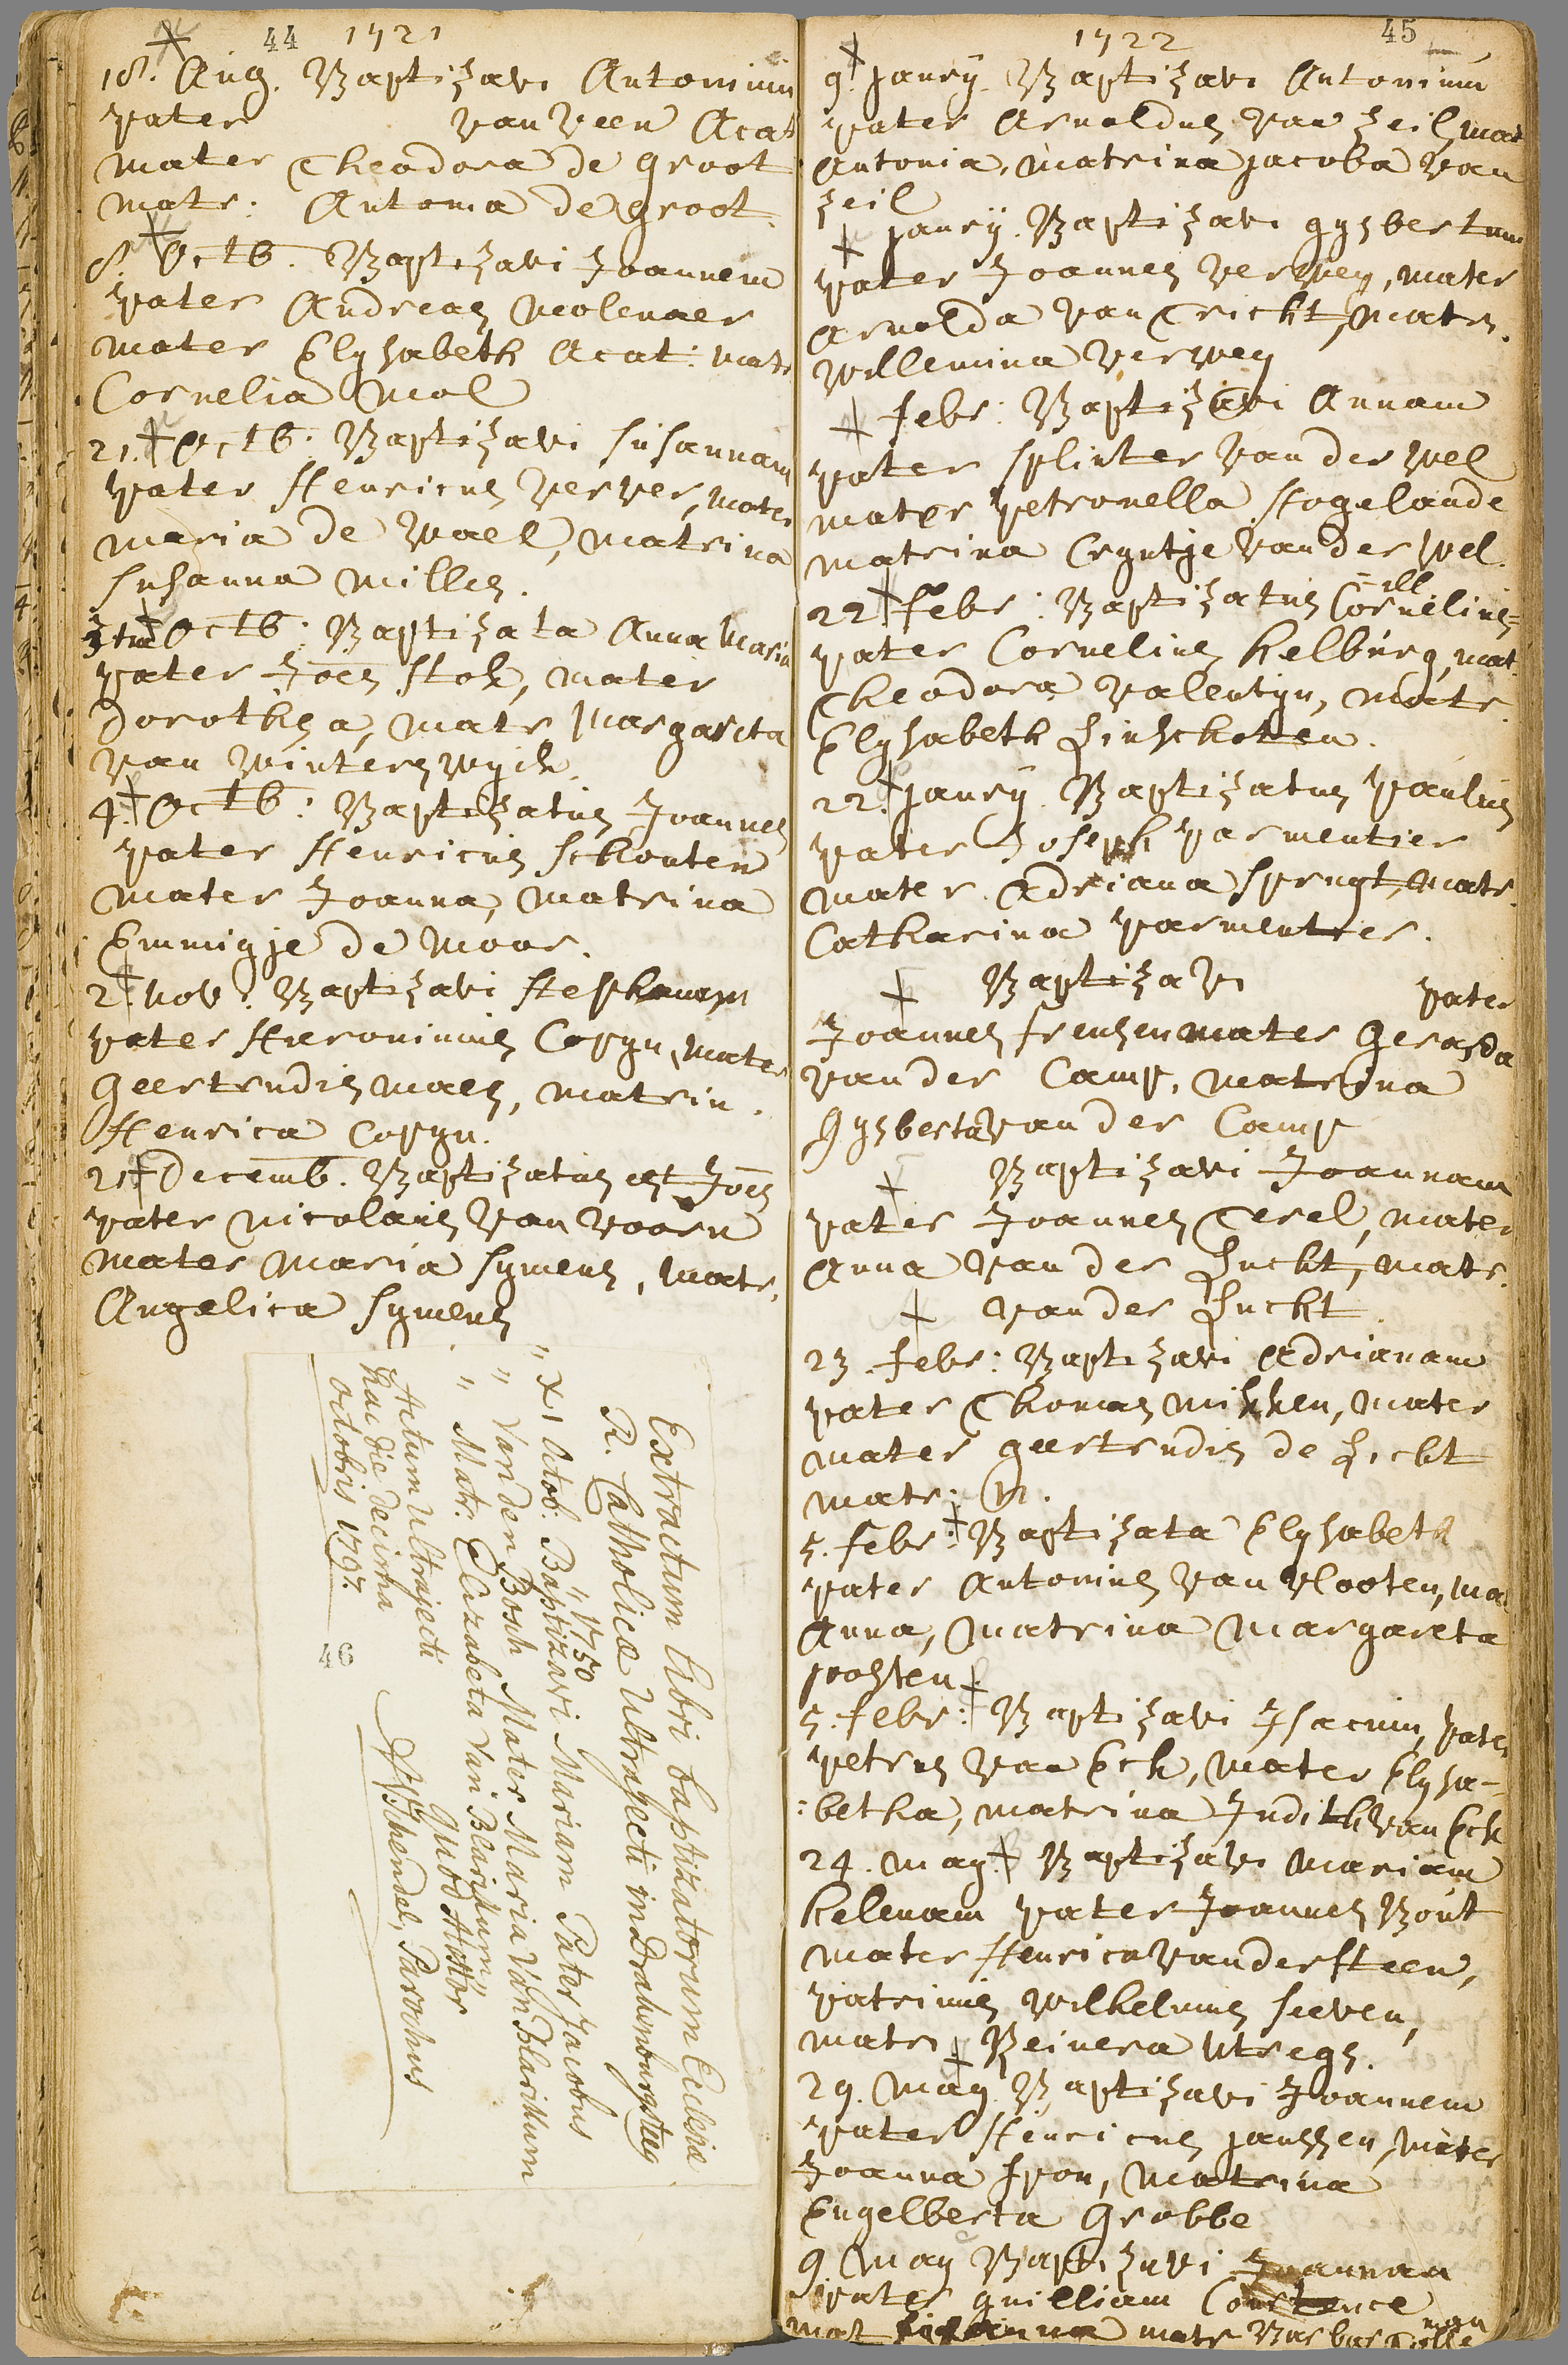 44 1721
18. Aug. Baptizavi Antonium
pater van Veen Acat
mater Theodora de Groot
matr: Antonia de Groot
8. Octb. Baptizavi Joannem
pater Andreas Molenaer
mater Elysabeth Acat: matr
Cornelia Mol
21. Octb: Baptizavi Susannam
pater Henricus Verver, mater
Maria de Wael, matrina
Susanna Milles.
Octb: Baptizata Anna Maria
pater Joes Stok, mater
Dorothea, matr Margareta
van Winterswyck.
4. Octb: Baptizatus Joannes
pater Henricus Schouten
mater Joanna, matrina
Emmigje de Moor.
2. Nov: Baptizavi Stephanum
pater Hieronimus Copyn, mater
Geertrudis Maes, matrin.
Henrica Copyn.
21 Decemb. Baptizatus est Joes
pater Nicolaus van Voorn
mater Maria Symens, matr.
Angelica Symens
Extractum Libri baptizatorum Ecclesiæ
R. Catholicæ Ultrajecti in Drakenburgsteeg
" 1750
" X1 Octob. Baptizavi Mariam Pater Jacobus
" Van den Bosch Mater Maria Van Blarikum
" Matr. Elizabeta Van Blarikum"
Quod Attestor
Actum Ultrajecti
hac die decima
octobris 1797.
Parochus
46
1722 45
9. January. Baptizavi Antonium
pater Arnoldus van Zeil, mat
Antonia, matrina Jacoba van
Zeil
January. Baptizavi Gysbertum
pater Joannes Verwey, mater
Arnolda van Tricht, matr.
Willemina Verwey
Febr: Baptizavi Annam
pater Splinter van der Wel
mater Petronella Hogelande
matrina Cryntje van der Wel.
22 Febr: Baptizatus Cornelius
pater Cornelius Kelburg, mat.
Theodora Valentyn, matr.
Elysabeth Linschoten.
22. January. Baptizatus Paulus
pater Joseph Parmentier
mater Adriana Sprugt, matr.
Catharina Parmentier.
Baptizavi pater
Joannes Frensen mater Gerarda
van der Camp, matrina
Gysberta van der Camp
Baptizavi Joannam
pater Joannes Terel, mater
Anna van der Lucht, matr.
van der Lucht.
23. Febr: Baptizavi Adrianam
pater Thomas Mikken, mater
mater Geertrudis de Licht
matr: N.
5. Febr: Baptizata Elysabeth
pater Antonius van Vlooten, mat
Anna, matrina Margareta
Joosten
5. Febr: Baptizavi Isacum, pater
Petrus van Eck, mater Elysa-
:betha, matrina Judith van Eck
24. May. Baptizavi Mariam
Helenam pater Joannes Bout
mater Henrica van der Steen,
patrinus Wilhelmus Sieven,
matr. Reinera Utregs.
29. May Baptizavi Joannem
pater Henricus Janssen, mater
Joanna Spon, matrina
Engelberta Grobbe
9 May Baptizavi Joannam
pater Guilliam Constance
mat matr Barbara